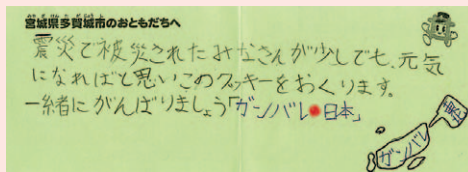 宮城県多賀城市のおともだちへ
震災で被災されたみなさんが少しでも、元気
になればと思いこのクッキーをおくります。
一緒にがんばりましょう「ガンバレ●日本」
ガンバレ
東北